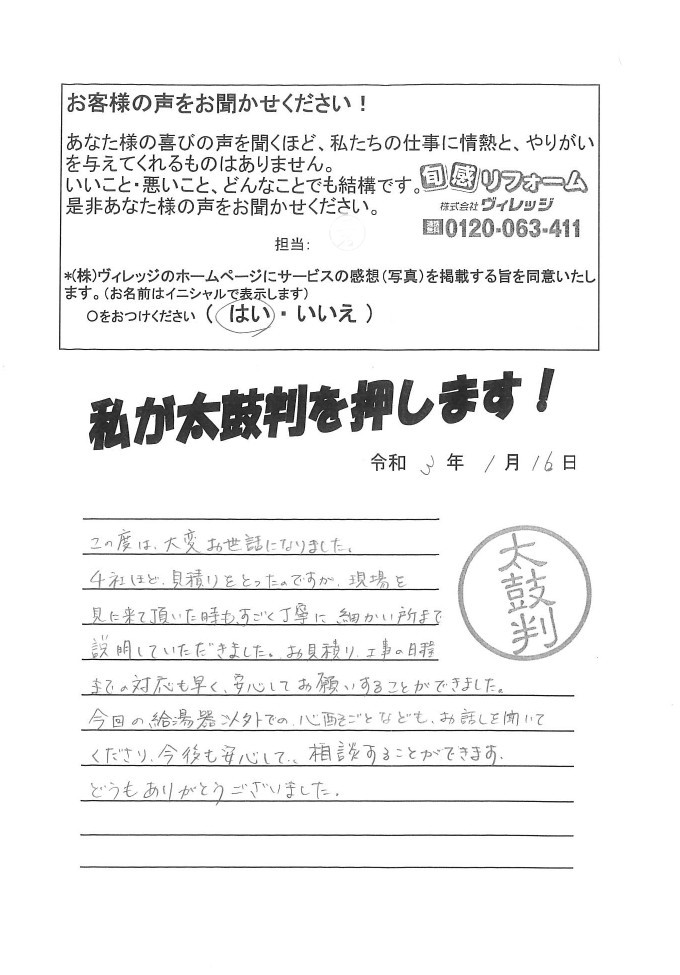 お客様の声をお聞かせください！
あなた様の喜びの声を聞くほど、私たちの仕事に情熱と、やりがい
を与えてくれるものはありません。
いいこと・悪いこと、どんなことでも結構です。
是非あなた様の声をお聞かせください。
旬感リフォーム
株式会社ヴィレッジ
0120-063-411
担当：
*(株)ヴィレッジのホームページにサービスの感想(写真)を掲載する旨を同意いたし
ます。(お名前はイニシャルで表示します)
○をおつけください ( はい ・ いいえ )
私が太鼓判を押します！
令和 3 年 1 月 16 日
この度は、大変お世話になりました。
4社ほど、見積りをとったのですが、現場を
見に来て頂いた時も、すごく丁寧に細かい所まで
説明していただきました。お見積り、工事の日程
までの対応も早く、安心してお願いすることができました。
今回の給湯器以外での、心配ごとなども、お話しを聞いて
くださり、今後も安心して、相談することができます。
どうもありがとうございました。
太鼓判